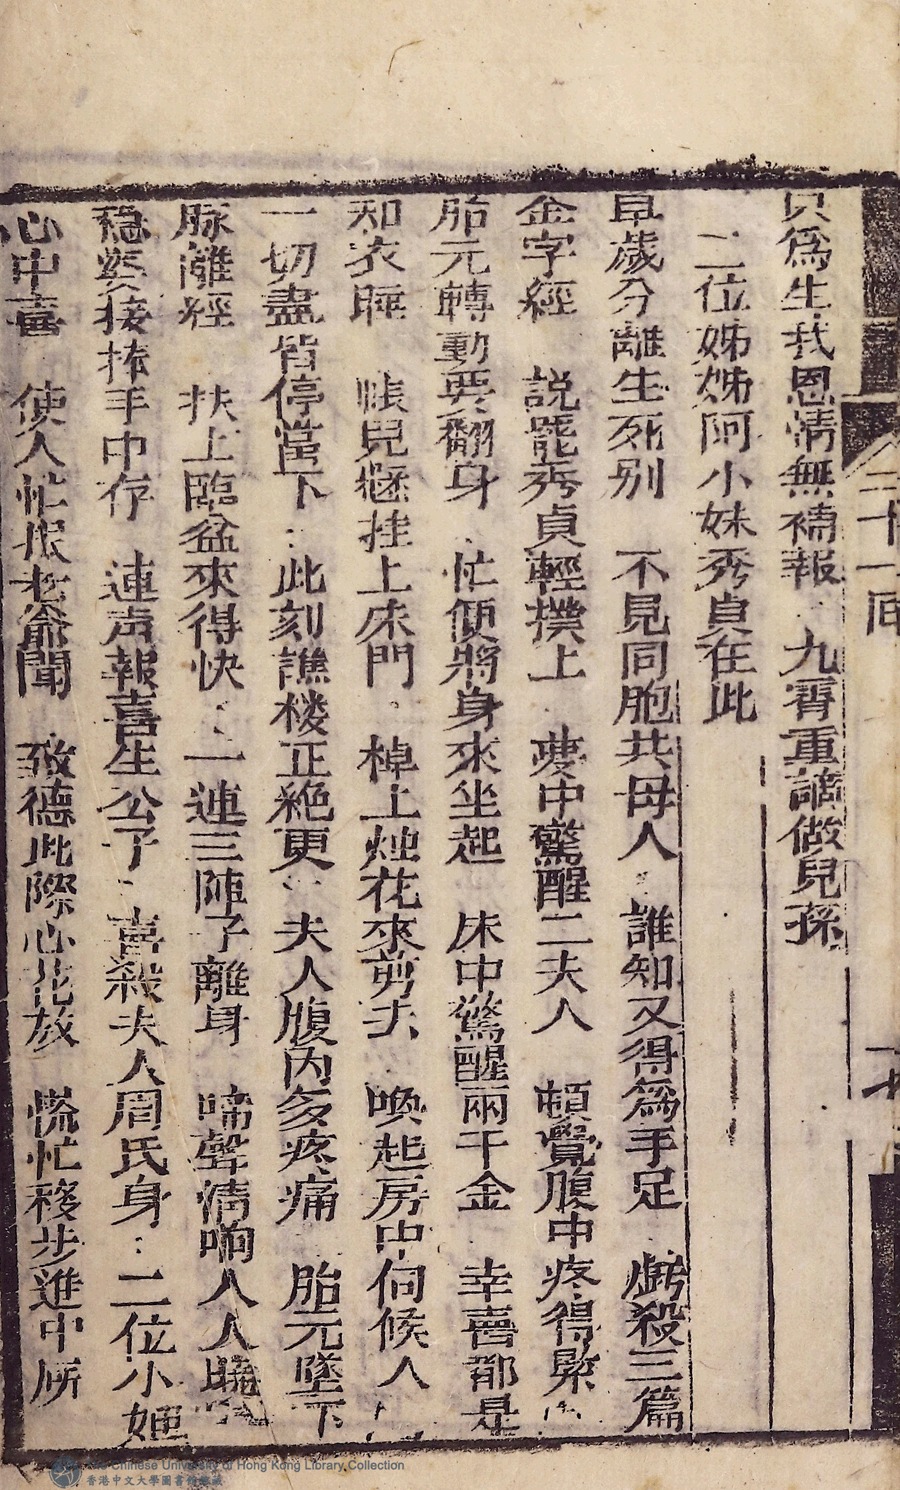 只爲生我恩情無補報 九霄重謫做兒孫
二位姊姊阿小妹秀貞在此
早歲分離生死别 不見同胞共母人 誰知又得爲手足 虧殺三篇
金字經 説罷秀貞輕撲上 夢中驚醒二夫人 頓覺腹中疼得緊
胎元轉動要翻身 忙便將身來坐起 床中驚醒兩千金 幸喜都是
和衣睡 帳兒懸挂上床門 棹上燭花來剪去 喚起房中伺候人
一切盡皆停當下 此刻譙楼正絶更 夫人腹内多疼痛 胎元墜下
脉離經 扶上臨盆來得快 一連三陣子離身 啼聲清响人人聽
穩婆接捧手中存 連声報喜生公子 喜殺夫人周氏身 二位小姐
心中喜 使人忙报老爺聞 致德此際心花放 慌忙移步進中所
二十一回
The Chinese University of Hong Kong Library Collection
香港中文大學圖書館藏